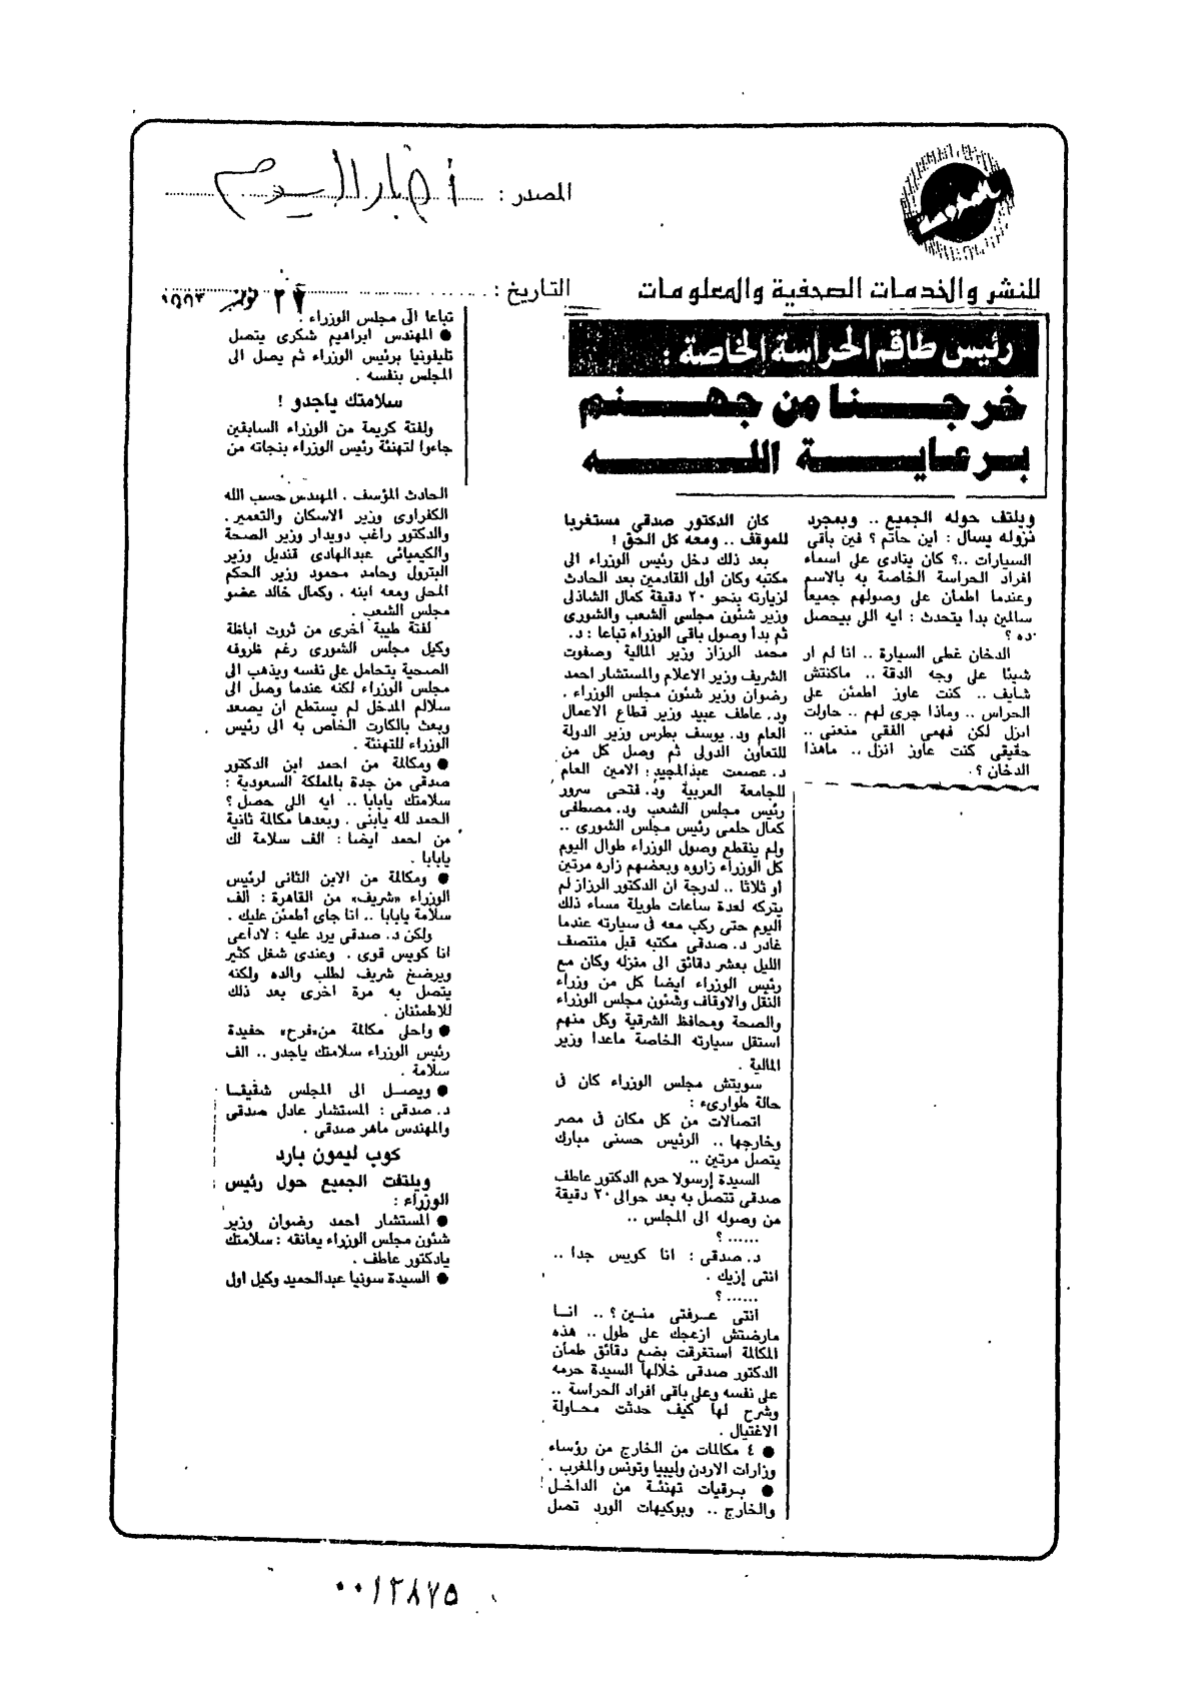 المصدر : أخبار اليوم
للنشر والخدمات الصحفية والمعلومات
التاريخ : ٢٧ نوفمبر ١٩٩٣
رئيس طاقم الحراسة الخاصة :
خرجنا من جهنم
برعاية الله
ويلتف حوله الجميع .. وبمجرد
نزوله يسأل : اين حاتم ؟ فين باقى
السيارات ..؟ كان ينادى على اسماء
افراد الحراسة الخاصة به بالاسم
وعندما اطمان على وصولهم جميعا
سالمين بدأ يتحدث : ايه اللى بيحصل
ده ؟
الدخان غطى السيارة .. انا لم ار
شيئا على وجه الدقة .. ماكنتش
شايف .. كنت عاوز اطمئن على
الحراس .. وماذا جرى لهم .. حاولت
انزل لكن فهمى الفقى منعنى ..
حقيقى كنت عاوز انزل .. ماهذا
الدخان ؟.
كان الدكتور صدقى مستغربا
للموقف .. ومعه كل الحق !
بعد ذلك دخل رئيس الوزراء الى
مكتبه وكان اول القادمين بعد الحادث
لزيارته بنحو ٢٠ دقيقة كمال الشاذلى
وزير شئون مجلسى الشعب والشورى
ثم بدأ وصول باقى الوزراء تباعا : د.
محمد الرزاز وزير المالية وصفوت
الشريف وزير الاعلام والمستشار احمد
رضوان وزير شئون مجلس الوزراء .
ود. عاطف عبيد وزير قطاع الاعمال
العام ود. يوسف بطرس وزير الدولة
للتعاون الدولى ثم وصل كل من
د. عصمت عبدالمجيد الامين العام
للجامعة العربية ود. فتحى سرور
رئيس مجلس الشعب ود. مصطفى
كمال حلمى رئيس مجلس الشورى ..
ولم ينقطع وصول الوزراء طوال اليوم
كل الوزراء زاروه وبعضهم زاره مرتين
او ثلاثا .. لدرجة ان الدكتور الرزاز لم
يتركه لعدة ساعات طويلة مساء ذلك
اليوم حتى ركب معه فى سيارته عندما
غادر د. صدقى مكتبه قبل منتصف
الليل بعشر دقائق الى منزله وكان مع
رئيس الوزراء ايضا كل من وزراء
النقل والاوقاف وشئون مجلس الوزراء
والصحة ومحافظ الشرقية وكل منهم
استقل سيارته الخاصة ماعدا وزير
المالية .
سويتش مجلس الوزراء كان فى
حالة طوارىء :
اتصالات من كل مكان فى مصر
وخارجها .. الرئيس حسنى مبارك
يتصل مرتين ..
السيدة إرسولا حرم الدكتور عاطف
صدقى تتصل به بعد حوالى ٢٠ دقيقة
من وصوله الى المجلس ..
...... ؟
د. صدقى : انا كويس جدا ..
انتى إزيك .
...... ؟
انتى عرفتى منين ؟ .. انا
مارضتش ازعجك على طول .. هذه
المكالمة استغرقت بضع دقائق طمأن
الدكتور صدقى خلالها السيدة حرمه
على نفسه وعلى باقى افراد الحراسة ..
وشرح لها كيف حدثت محاولة
الاغتيال .
● ٤ مكالمات من الخارج من رؤساء
وزارات الاردن وليبيا وتونس والمغرب .
● برقيات تهنئة من الداخل
والخارج .. وبوكيهات الورد تصل
تباعا الى مجلس الوزراء .
● المهندس ابراهيم شكرى يتصل
تليفونيا برئيس الوزراء ثم يصل الى
المجلس بنفسه .
سلامتك ياجدو !
ولفتة كريمة من الوزراء السابقين
جاءوا لتهنئة رئيس الوزراء بنجاته من
الحادث المؤسف . المهندس حسب الله
الكفراوى وزير الاسكان والتعمير .
والدكتور راغب دويدار وزير الصحة
والكيميائى عبدالهادى قنديل وزير
البترول وحامد محمود وزير الحكم
المحلى ومعه ابنه . وكمال خالد عضو
مجلس الشعب .
لفتة طيبة اخرى من ثروت اباظة
وكيل مجلس الشورى رغم ظروفه
الصحية يتحامل على نفسه ويذهب الى
مجلس الوزراء لكنه عندما وصل الى
سلالم المدخل لم يستطع ان يصعد
وبعث بالكارت الخاص به الى رئيس
الوزراء للتهنئة .
● ومكالمة من احمد ابن الدكتور
صدقى من جدة بالمملكة السعودية :
سلامتك يابابا .. ايه اللى حصل ؟
الحمد لله يابنى . وبعدها مكالمة ثانية
من احمد ايضا : الف سلامة لك
يابابا .
● ومكالمة من الابن الثانى لرئيس
الوزراء «شريف» من القاهرة : الف
سلامة يابابا .. انا جاى أطمئن عليك .
ولكن د. صدقى يرد عليه : لاداعى
انا كويس قوى . وعندى شغل كثير
ويرضخ شريف لطلب والده ولكنه
يتصل به مرة اخرى بعد ذلك
للاطمئنان .
● واحلى مكالمة من «فرح» حفيدة
رئيس الوزراء سلامتك ياجدو .. الف
سلامة .
● ويصل الى المجلس شقيقا
د. صدقى : المستشار عادل صدقى
والمهندس ماهر صدقى .
كوب ليمون بارد
ويلتفت الجميع حول رئيس
الوزراء :
● المستشار احمد رضوان وزير
شئون مجلس الوزراء يعانقه : سلامتك
يادكتور عاطف .
● السيدة سونيا عبدالحميد وكيل اول
٠٠١٢٨٧٥